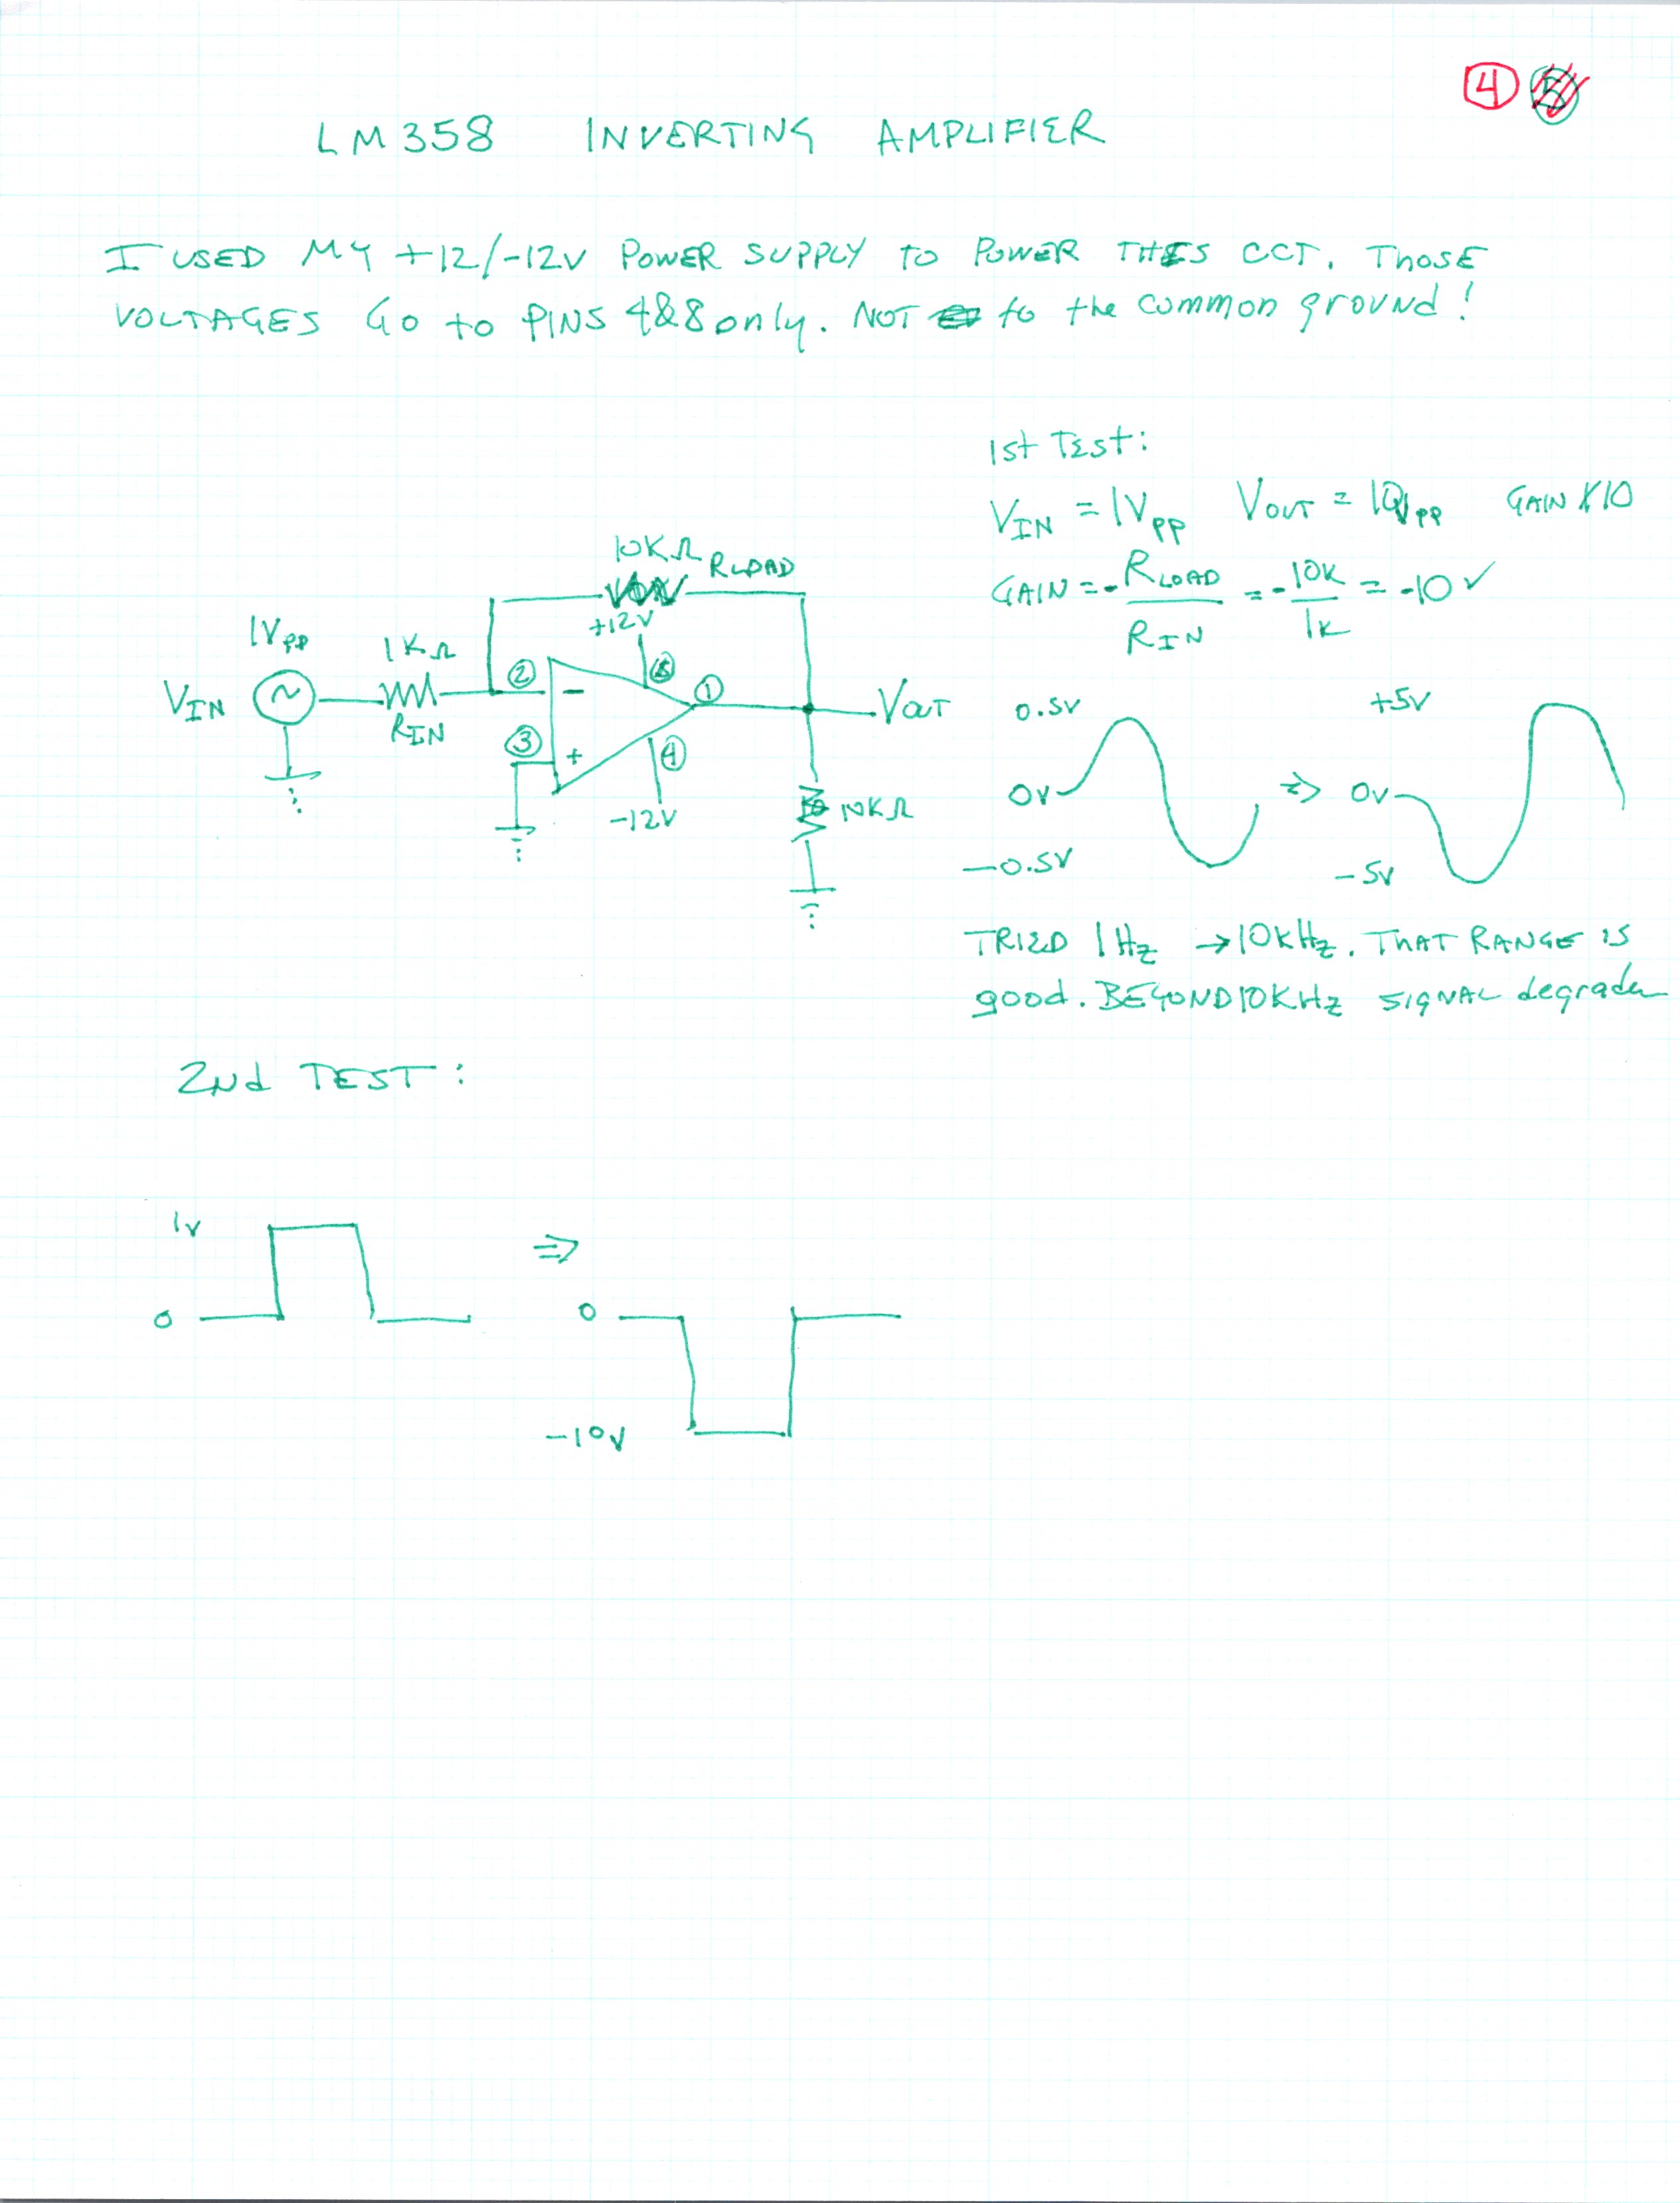 4
LM358 INVERTING AMPLIFIER
I USED MY +12/-12V POWER SUPPLY TO POWER THIS CCT. THOSE
VOLTAGES GO to PINS 4&8 only. NOT to the common ground!
1st TEST:
VIN = 1Vpp VOUT = 10Vpp GAIN X10
GAIN = -RLOAD/RIN = -10K/1K = -10 ✓
10KΩ RLOAD
+12V
1Vpp
1KΩ
VIN
RIN
2
-
8
1
VOUT
3
+
4
-12V
10KΩ
0.5V
0V
-0.5V
⇒
+5V
0V
-5V
TRIED 1Hz → 10kHz. THAT RANGE IS
good. BEYOND 10KHz SIGNAL degrades
2Nd TEST:
1V
0
⇒
0
-10V